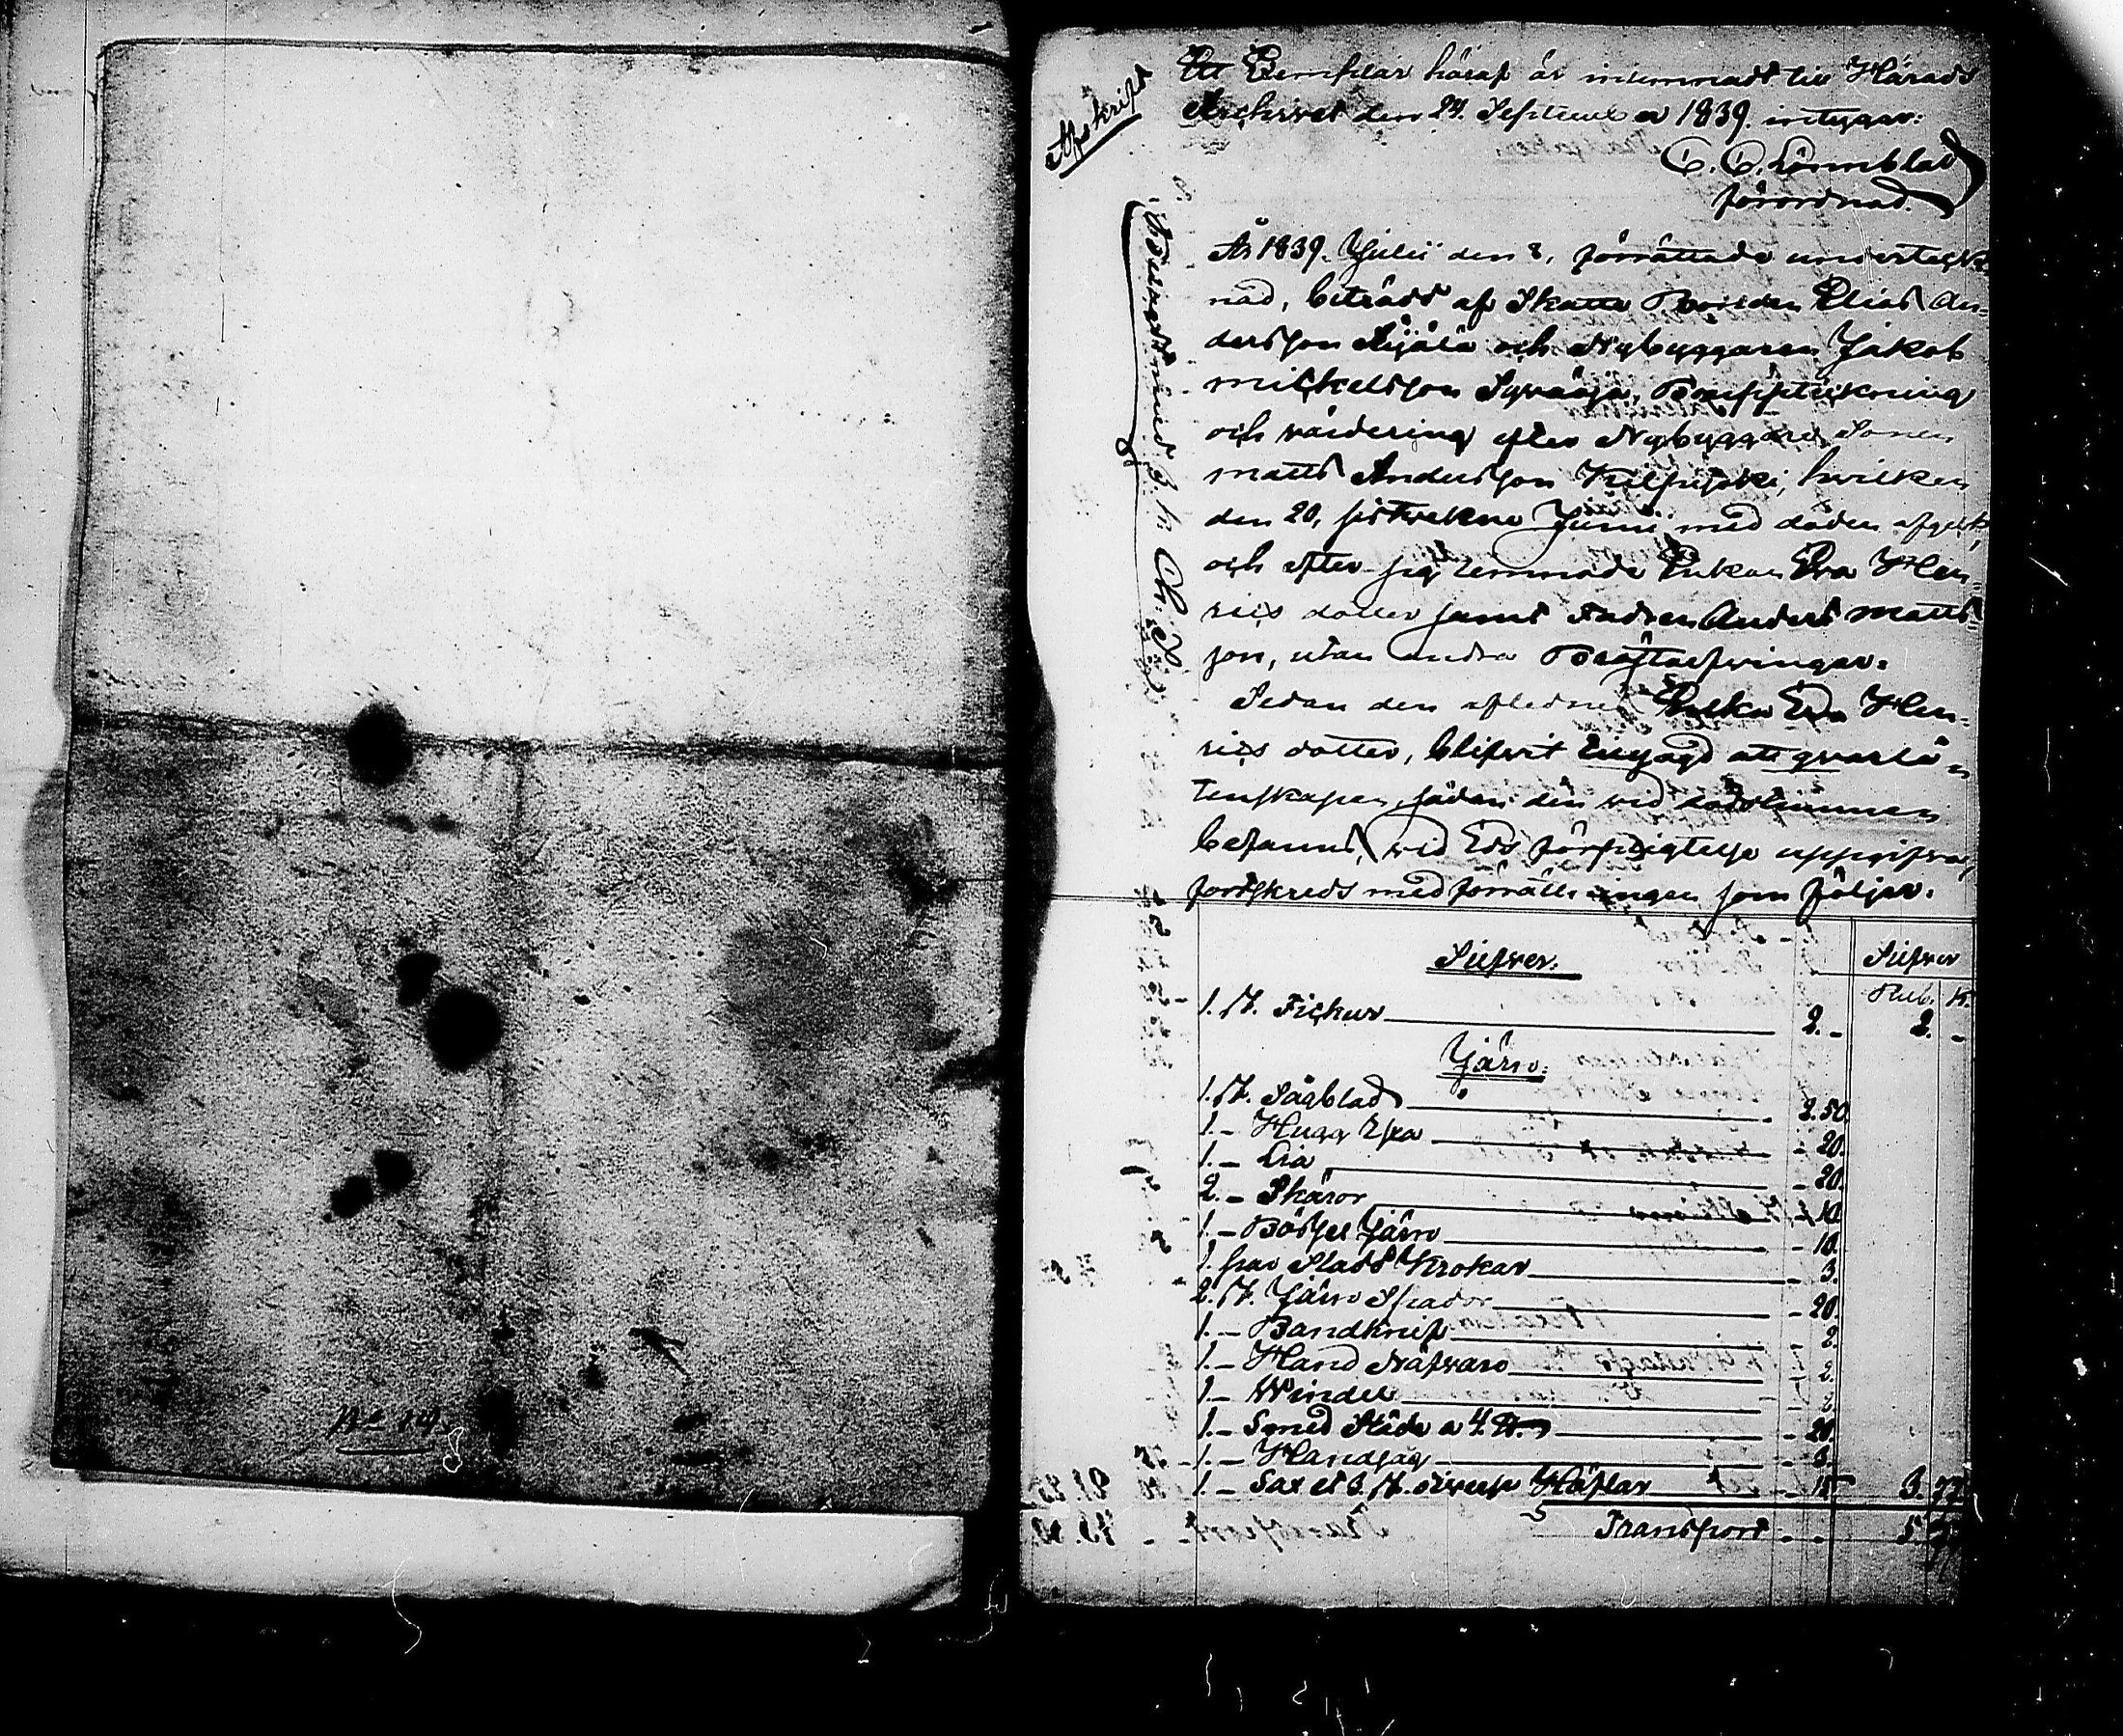 No 19.
Afskrift
Ett Exemplar häraf är inlemnadt till Härads
Archivet den 24. September 1839. intygar:
C. C. Lönnblad
förordnad.
År 1839. Julii den 8, förrättade underteck-
nad, biträdd af Skatte Bonden Elias An-
dersson Äijälä och Nybyggaren Jakob
Mickelsson Bouppteckning
och värdering efter Nybyggare Sonen
Matts Andersson Kilpijäki, hvilken
den 20, sistvekne Junii med döden afgick,
och efter sig lemnade Enkan Eva Hen-
rics dotter samt Fadren Anders Matts-
son, utan andra Bröstarfvingar.
Sedan den aflednes Enka Eva Hen-
rics dotter, blifvit tillsagd att qvarlå-
tenskapen, sådan den vid dödstimman
befanns, vid Eds förpligtelse uppgifva,
fortskreds med förrättningen som följer.
Silfver.
Silfver
Rub. K.
1. st. Fickur 2. - 2. -
Järn:
1. st. Sågblad 2.50.
1. - Hugg Yxa - 20.
1. - Lia - 20.
2. - Skäror - 10.
1. - Bössel Järn - 10.
1. par Slads Krokar - 3.
2. st. Järn Spador - 20.
1. - Bandknif - 2.
1. - Hand Näfvare - 2.
1. - Windel - 2.
1. - Smed Städe a 4. - 20.
1. - Handsåg - 3.
1. - Sax et 3. st. Häflar - 15 3. 77
Transport - - 5. 77